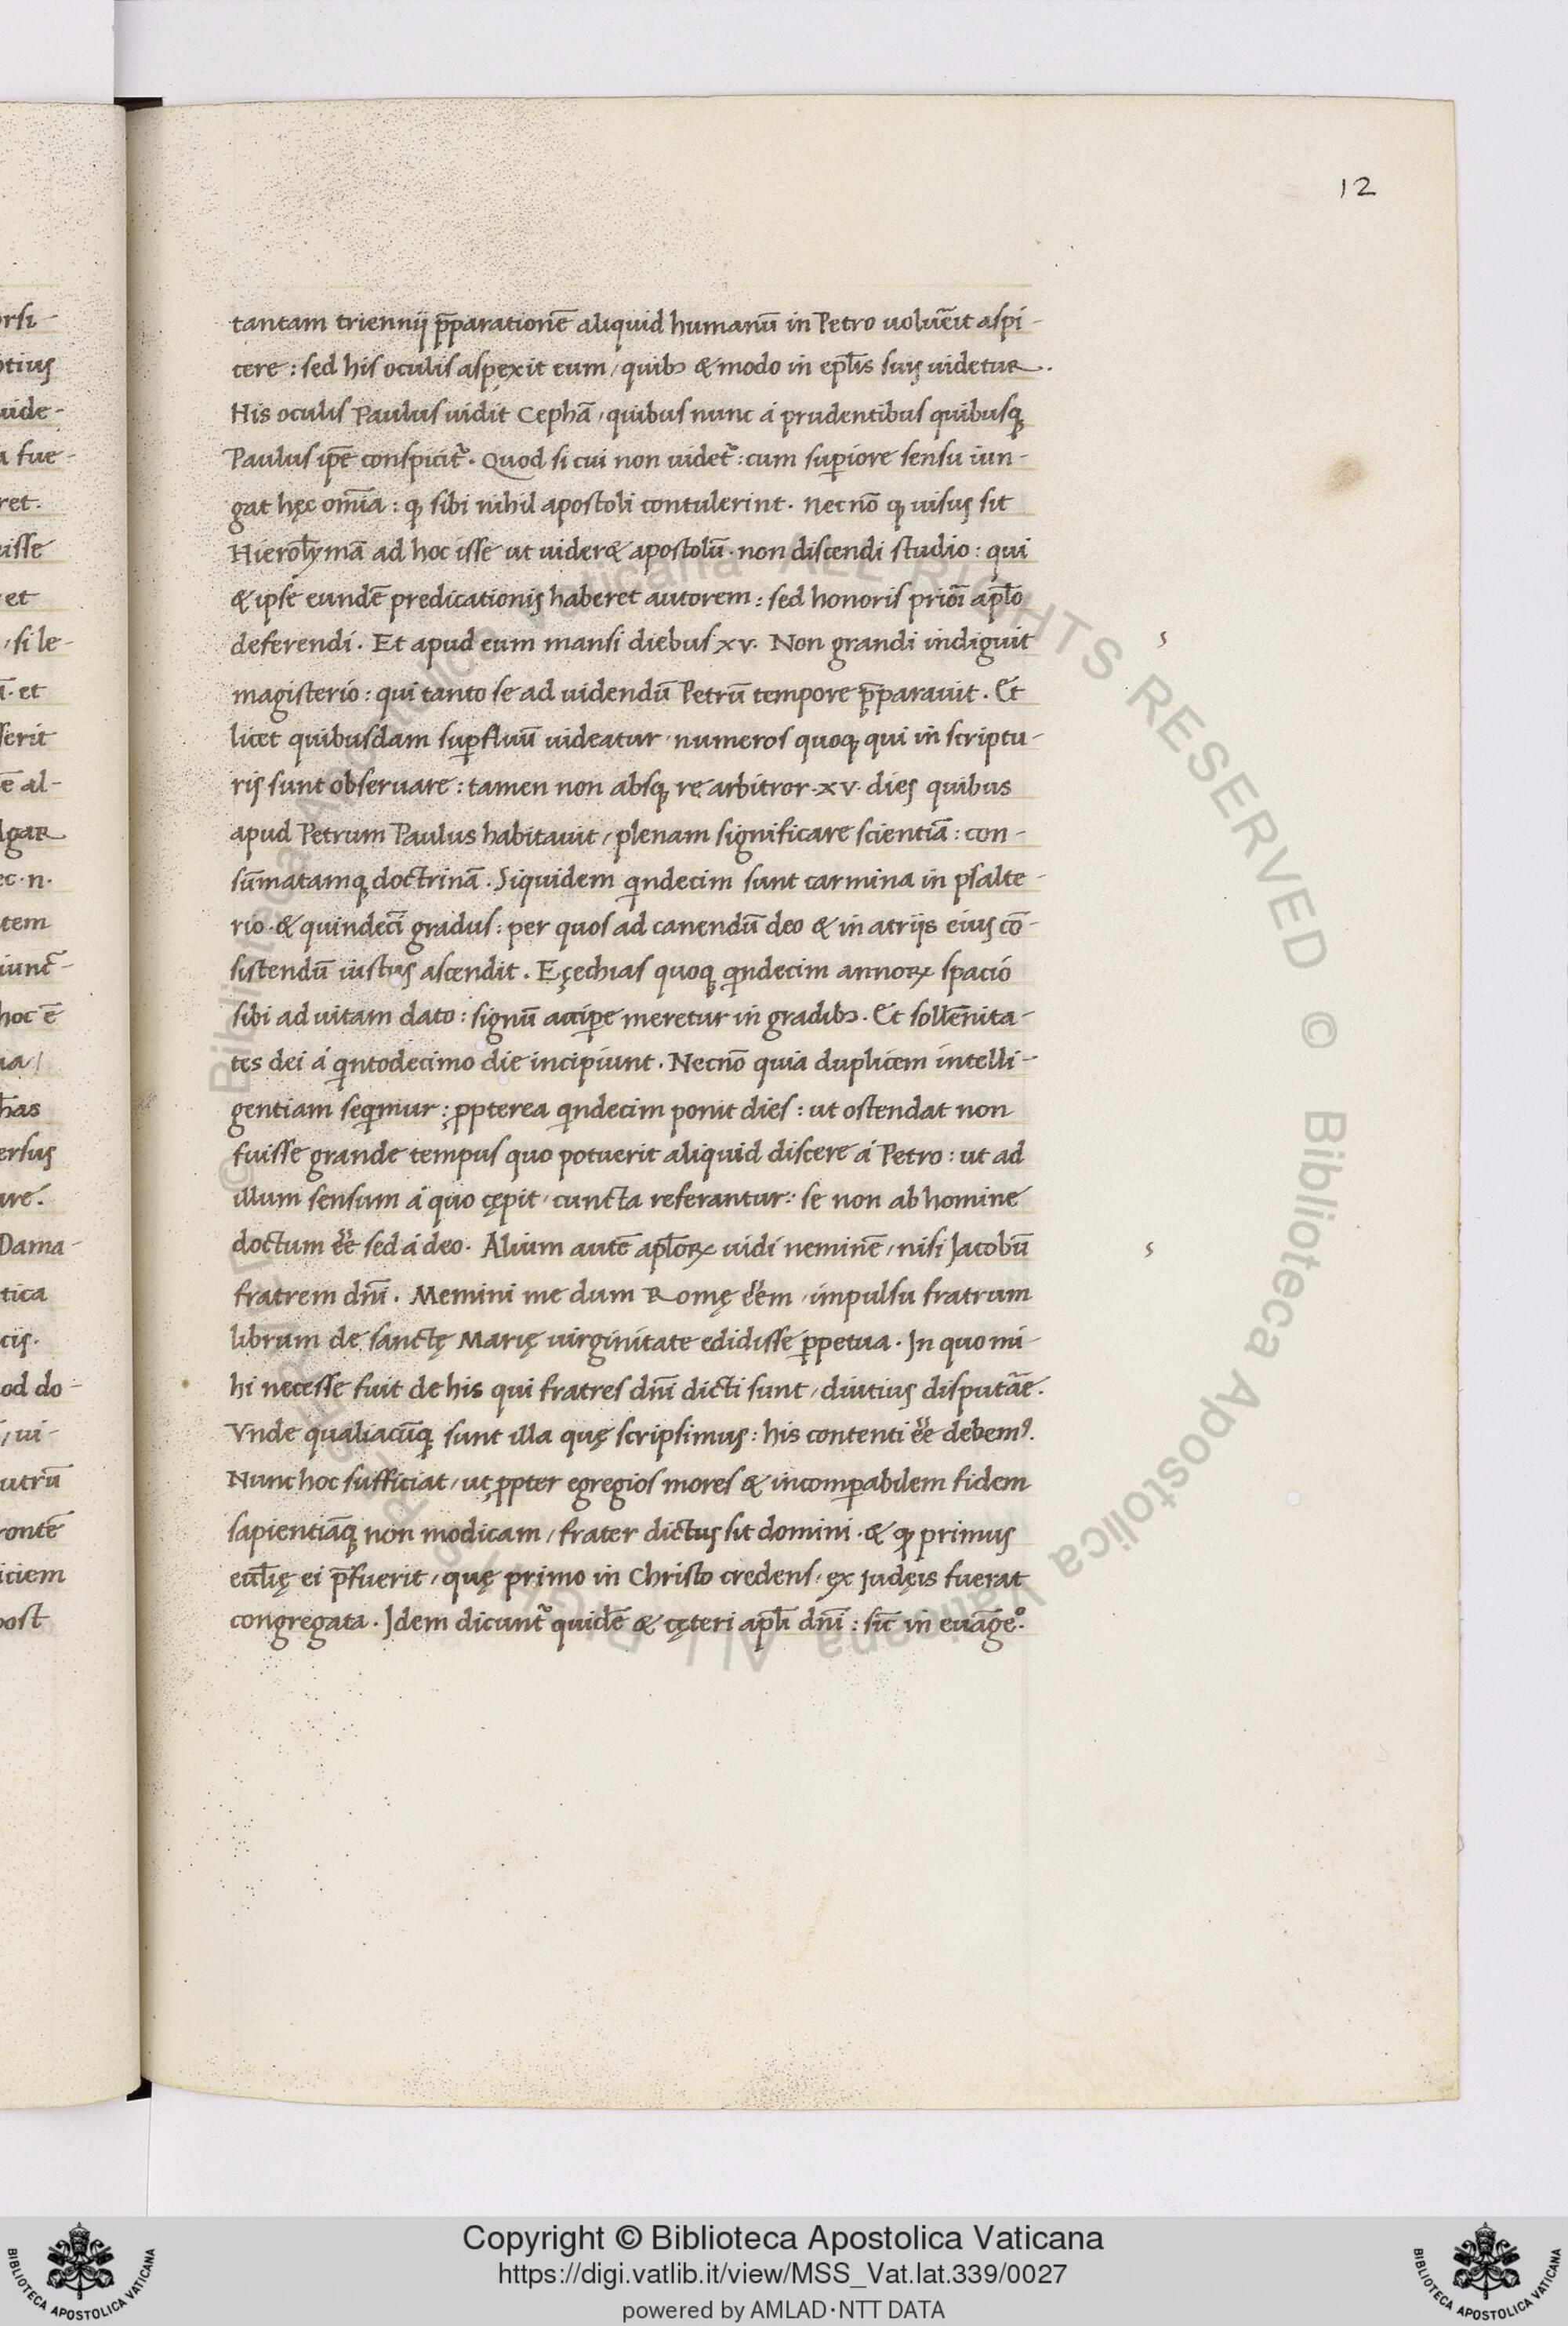 12
tantam triennij p̄parationē aliquid humanū in Petro uoluēit aspi-
cere: sed his oculis aspexit eum, quibꝫ & modo in epłis suis uidetur.
His oculis Paulus uidit Cephā, quibus nunc á prudentibus quibusqꝫ
Paulus ip̄e conspicit᷑. Quod si cui non uidet᷑: cum suꝑiore sensu iun-
gat hęc om̄ia: ꝙ sibi nihil apostoli contulerint. nec nō ꝙ uisus sit
Hierosłymā ad hoc isse ut uider& apostolū. non discendi studio: qui
& ipse eundē predicationis haberet autorem: sed honoris priōi apło
deferendi. Et apud eum mansi diebus xv. Non grandi indiguit
magisterio: qui tanto se ad uidendū Petrū tempore p̄parauit. Et
licet quibusdam suꝑfluū uideatur, numeros quoqꝫ qui in scriptu-
ris sunt obseruare: tamen non absqꝫ re arbitror. xv. dies quibus
apud Petrum Paulus habitauit, plenam significare scientiā: con-
sūmatamqꝫ doctrinā. Siquidem qindecim sunt carmina in psalte-
rio. & quindecī gradus: per quos ad canendū deo & in atrijs eius cō-
sistendū iustus ascendit. Eçechias quoqꝫ qindecim annoꝝ spacio
sibi ad uitam dato: signū acciꝑe meretur in gradibꝫ. Et sollēnita-
tes dei á qintodecimo die incipiunt. Necnō quia duplicem intelli-
gentiam seqimur: ꝓpterea qindecim ponit dies: ut ostendat non
fuisse grande tempus quo potuerit aliquid discere á Petro: ut ad
illum sensum á quo cępit, cuncta referantur: se non ab homine
doctum ēē sed á deo. Alium autē apłoꝝ uidi neminē, nisi Jacobū
fratrem dn̄i. Memini me dum Romę ēēm, impulsu fratrum
librum de sanctę Marię uirginitate edidisse ꝑpetua. In quo mi-
hi necesse fuit de his qui fratres dn̄i dicti sunt, diutius disputāe.
Vnde qualiacūqꝫ sunt illa quę scripsimus: his contenti ēē debemꝰ.
Nunc hoc sufficiat, ut ꝓpter egregios mores & incomꝑabilem fidem
sapientiāqꝫ non modicam, frater dictus sit domini. & ꝙ primus
ecłię ei p̄fuerit, quę primo in Christo credens, ex iudęis fuerat
congregata. Idem dicunt᷑ quidē & cęteri apłi dn̄i: sīc in euāgeº.
Copyright © Biblioteca Apostolica Vaticana
https://digi.vatlib.it/view/MSS_Vat.lat.339/0027
powered by AMLAD·NTT DATA